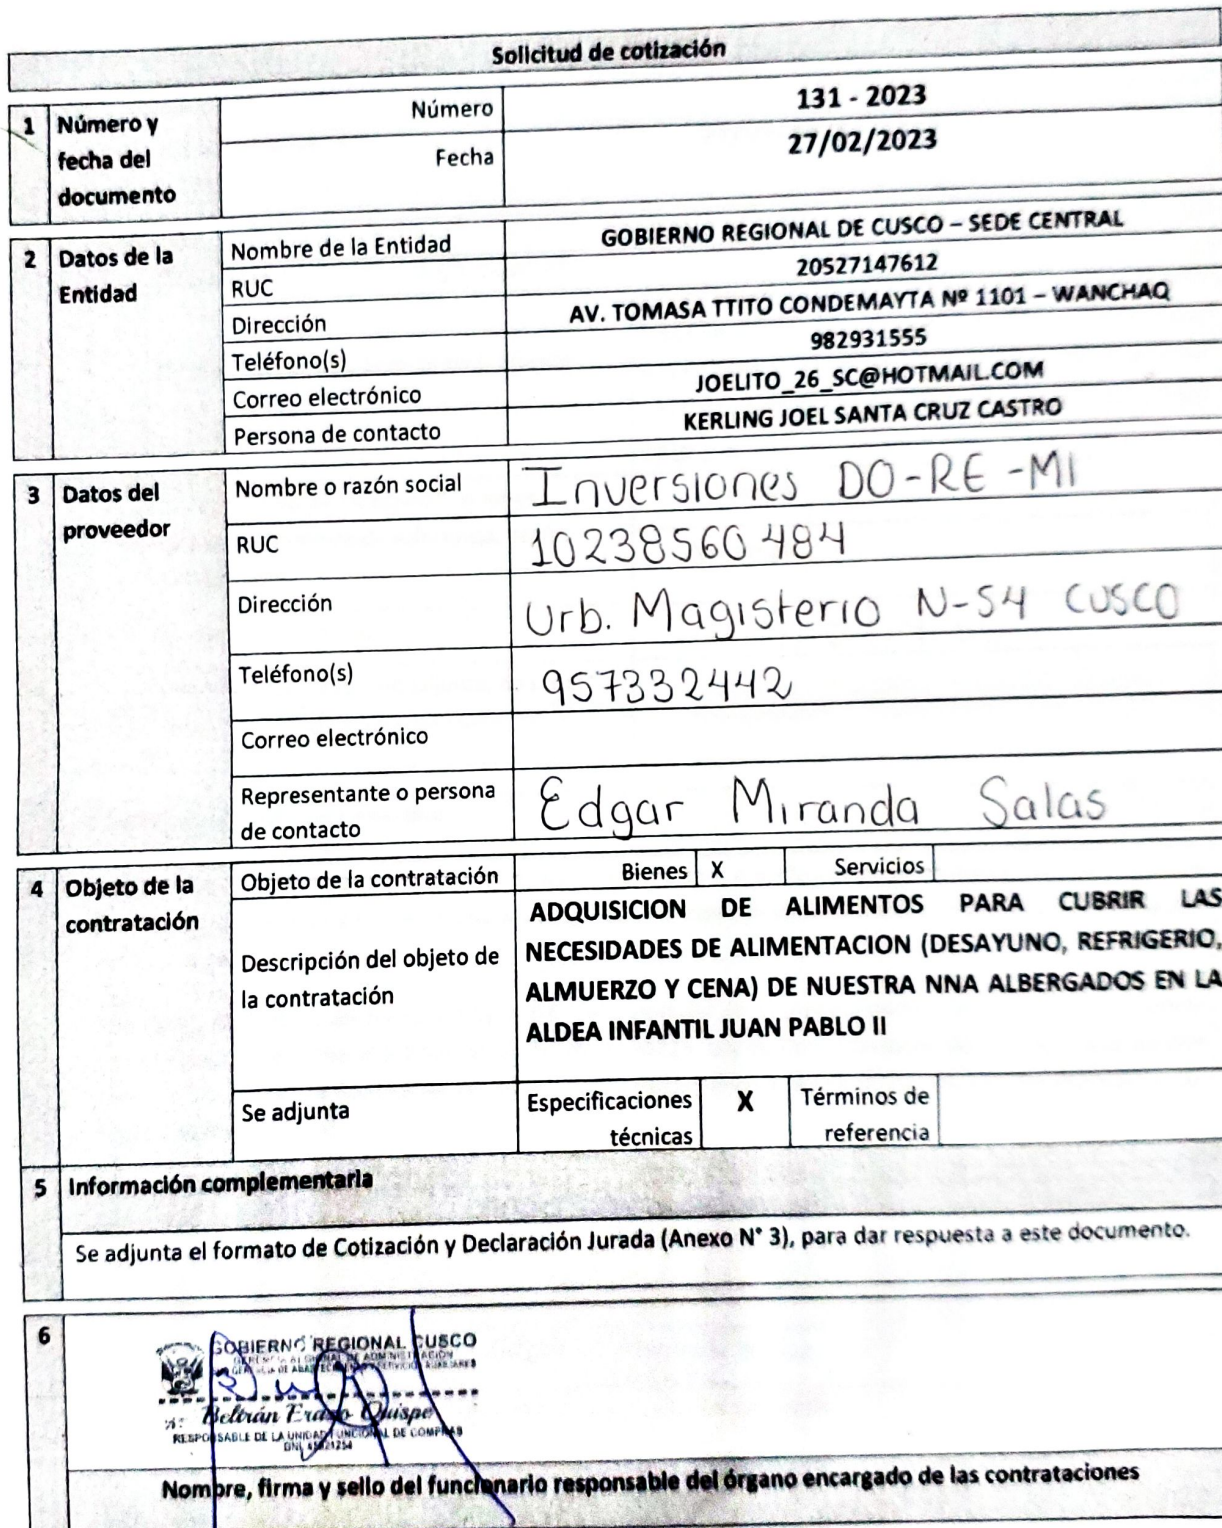 Solicitud de cotización
1 Número y fecha del documento
Número 131 - 2023
Fecha 27/02/2023
2 Datos de la Entidad
Nombre de la Entidad GOBIERNO REGIONAL DE CUSCO – SEDE CENTRAL
RUC 20527147612
Dirección AV. TOMASA TTITO CONDEMAYTA Nº 1101 – WANCHAQ
Teléfono(s) 982931555
Correo electrónico JOELITO_26_SC@HOTMAIL.COM
Persona de contacto KERLING JOEL SANTA CRUZ CASTRO
3 Datos del proveedor
Nombre o razón social Inversiones DO-RE-MI
RUC 10238560484
Dirección Urb. Magisterio N-54 CUSCO
Teléfono(s) 957332442
Correo electrónico
Representante o persona de contacto Edgar Miranda Salas
4 Objeto de la contratación
Objeto de la contratación Bienes X Servicios
Descripción del objeto de la contratación
ADQUISICION DE ALIMENTOS PARA CUBRIR LAS
NECESIDADES DE ALIMENTACION (DESAYUNO, REFRIGERIO,
ALMUERZO Y CENA) DE NUESTRA NNA ALBERGADOS EN LA
ALDEA INFANTIL JUAN PABLO II
Se adjunta Especificaciones técnicas X Términos de referencia
5 Información complementaria
Se adjunta el formato de Cotización y Declaración Jurada (Anexo N° 3), para dar respuesta a este documento.
6
GOBIERNO REGIONAL CUSCO
GERENCIA REGIONAL DE ADMINISTRACIÓN
Beltrán Erazo Quispe
RESPONSABLE DE LA UNIDAD FUNCIONAL DE COMPRAS
Nombre, firma y sello del funcionario responsable del órgano encargado de las contrataciones